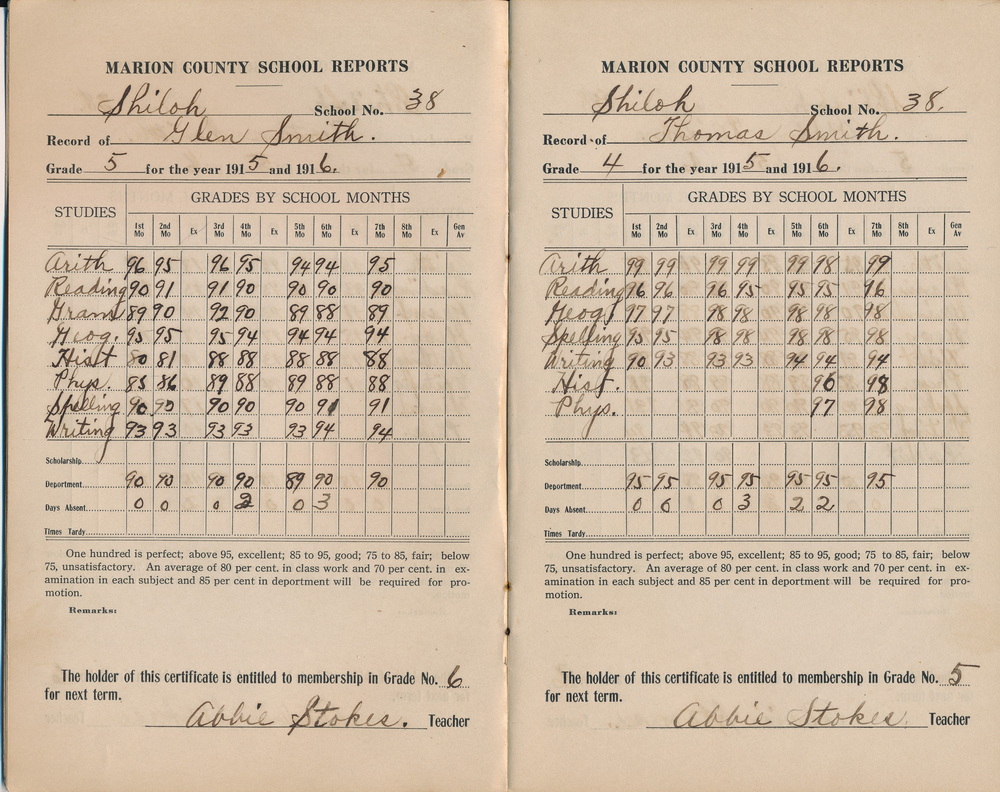 MARION COUNTY SCHOOL REPORTS
Shiloh School No. 38
Record of Glen Smith.
Grade 5 for the year 1915 and 1916.
STUDIES GRADES BY SCHOOL MONTHS
1st Mo 2nd Mo Ex 3rd Mo 4th Mo Ex 5th Mo 6th Mo Ex 7th Mo 8th Mo Ex Gen Av
Arith 96 95 96 95 94 94 95
Reading 90 91 91 90 90 90 90
Gram 89 90 92 90 89 88 89
Geog. 95 95 95 94 94 94 94
Hist 80 81 88 88 88 88 88
Phys. 85 86 89 88 89 88 88
Spelling 90 90 90 90 90 91 91
Writing 93 93 93 93 93 94 94
Scholarship
Department 90 90 90 90 89 90 90
Days Absent 0 0 0 2 0 3
Times Tardy
One hundred is perfect; above 95, excellent; 85 to 95, good; 75 to 85, fair; below
75, unsatisfactory. An average of 80 per cent. in class work and 70 per cent. in ex-
amination in each subject and 85 per cent in deportment will be required for pro-
motion.
Remarks:
The holder of this certificate is entitled to membership in Grade No. 6
for next term.
Abbie Stokes. Teacher
MARION COUNTY SCHOOL REPORTS
Shiloh School No. 38.
Record of Thomas Smith.
Grade 4 for the year 1915 and 1916.
STUDIES GRADES BY SCHOOL MONTHS
1st Mo 2nd Mo Ex 3rd Mo 4th Mo Ex 5th Mo 6th Mo Ex 7th Mo 8th Mo Ex Gen Av
Arith 99 99 99 99 99 98 99
Reading 96 96 96 95 95 95 96
Geog 97 97 98 98 98 98 98
Spelling 95 95 98 98 98 98 98
Writing 90 93 93 93 94 94 94
Hist. 96 98
Phys. 97 98
Scholarship
Department 95 95 95 95 95 95 95
Days Absent 0 0 0 3 2 2
Times Tardy
One hundred is perfect; above 95, excellent; 85 to 95, good; 75 to 85, fair; below
75, unsatisfactory. An average of 80 per cent. in class work and 70 per cent. in ex-
amination in each subject and 85 per cent in deportment will be required for pro-
motion.
Remarks:
The holder of this certificate is entitled to membership in Grade No. 5
for next term.
Abbie Stokes. Teacher